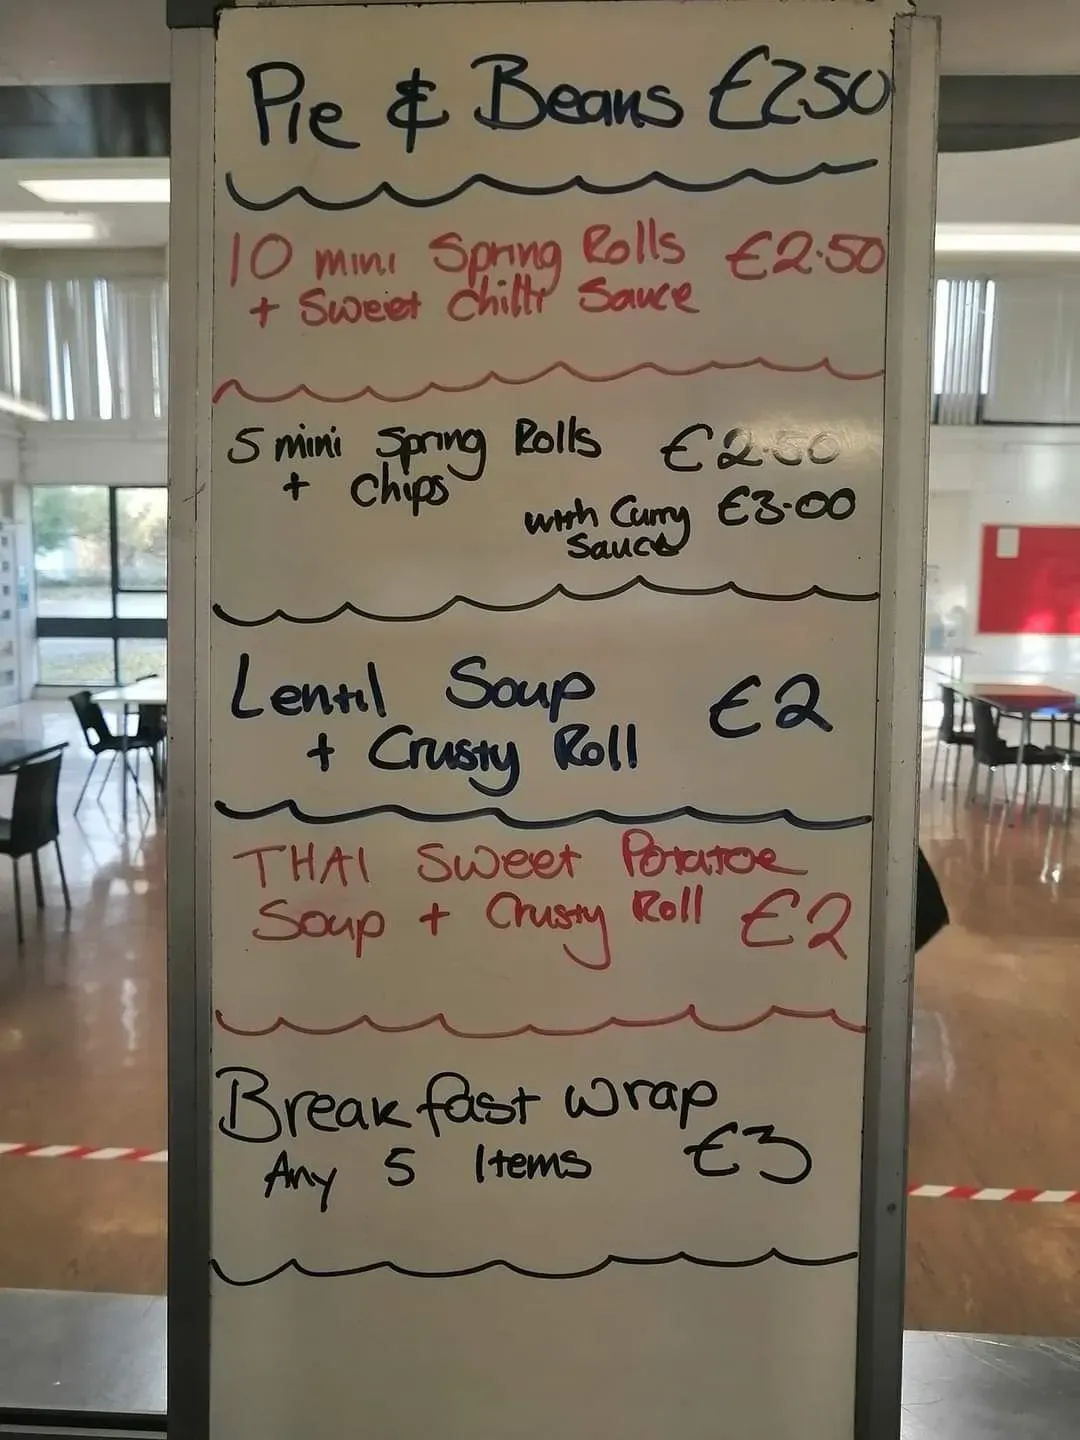 Pie & Beans £250
10 mini Spring Rolls £2.50
+ Sweet Chilli Sauce
5 mini Spring Rolls £2.50
+ Chips
with Curry £3.00
Sauce
Lentil Soup £2
+ Crusty Roll
THAI Sweet Potatoe
Soup + Crusty Roll £2
Breakfast wrap
Any 5 Items £3